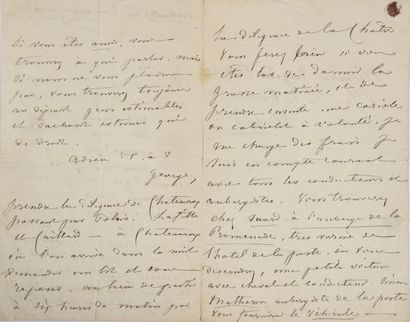 Si vous êtes ami, vous
trouverez à qui parler, mais
si nous ne vous plaisons
pas, vous trouverez toujours
au départ gens estimables
et sachant estimer qui
de droit.
adieu
George,
prendre la diligence de Chateauroux
passant par Blois. Laffitte
et Caillard — à Chateauroux
où l'on arrive dans la nuit
demander un lit et vous
reposer. ou bien de partir
à six heures du matin par
la diligence de la Châtre
Vous ferez bien si vous
êtes las de dormir la
grasse matinée, et de
prendre ensuite une cariole
ou cabriolet à volonté. je
me charge des frais je
suis en compte courant
avec tous les conducteurs et
aubergistes. Vous trouverez
chez Suard à l'auberge de la
Promenade, très voisine de
l'hotel de la poste, où vous
descendrez, une petite voiture
avec cheval et conducteur. Sinon
aubergiste de la poste
Vous fournira le véhicule —